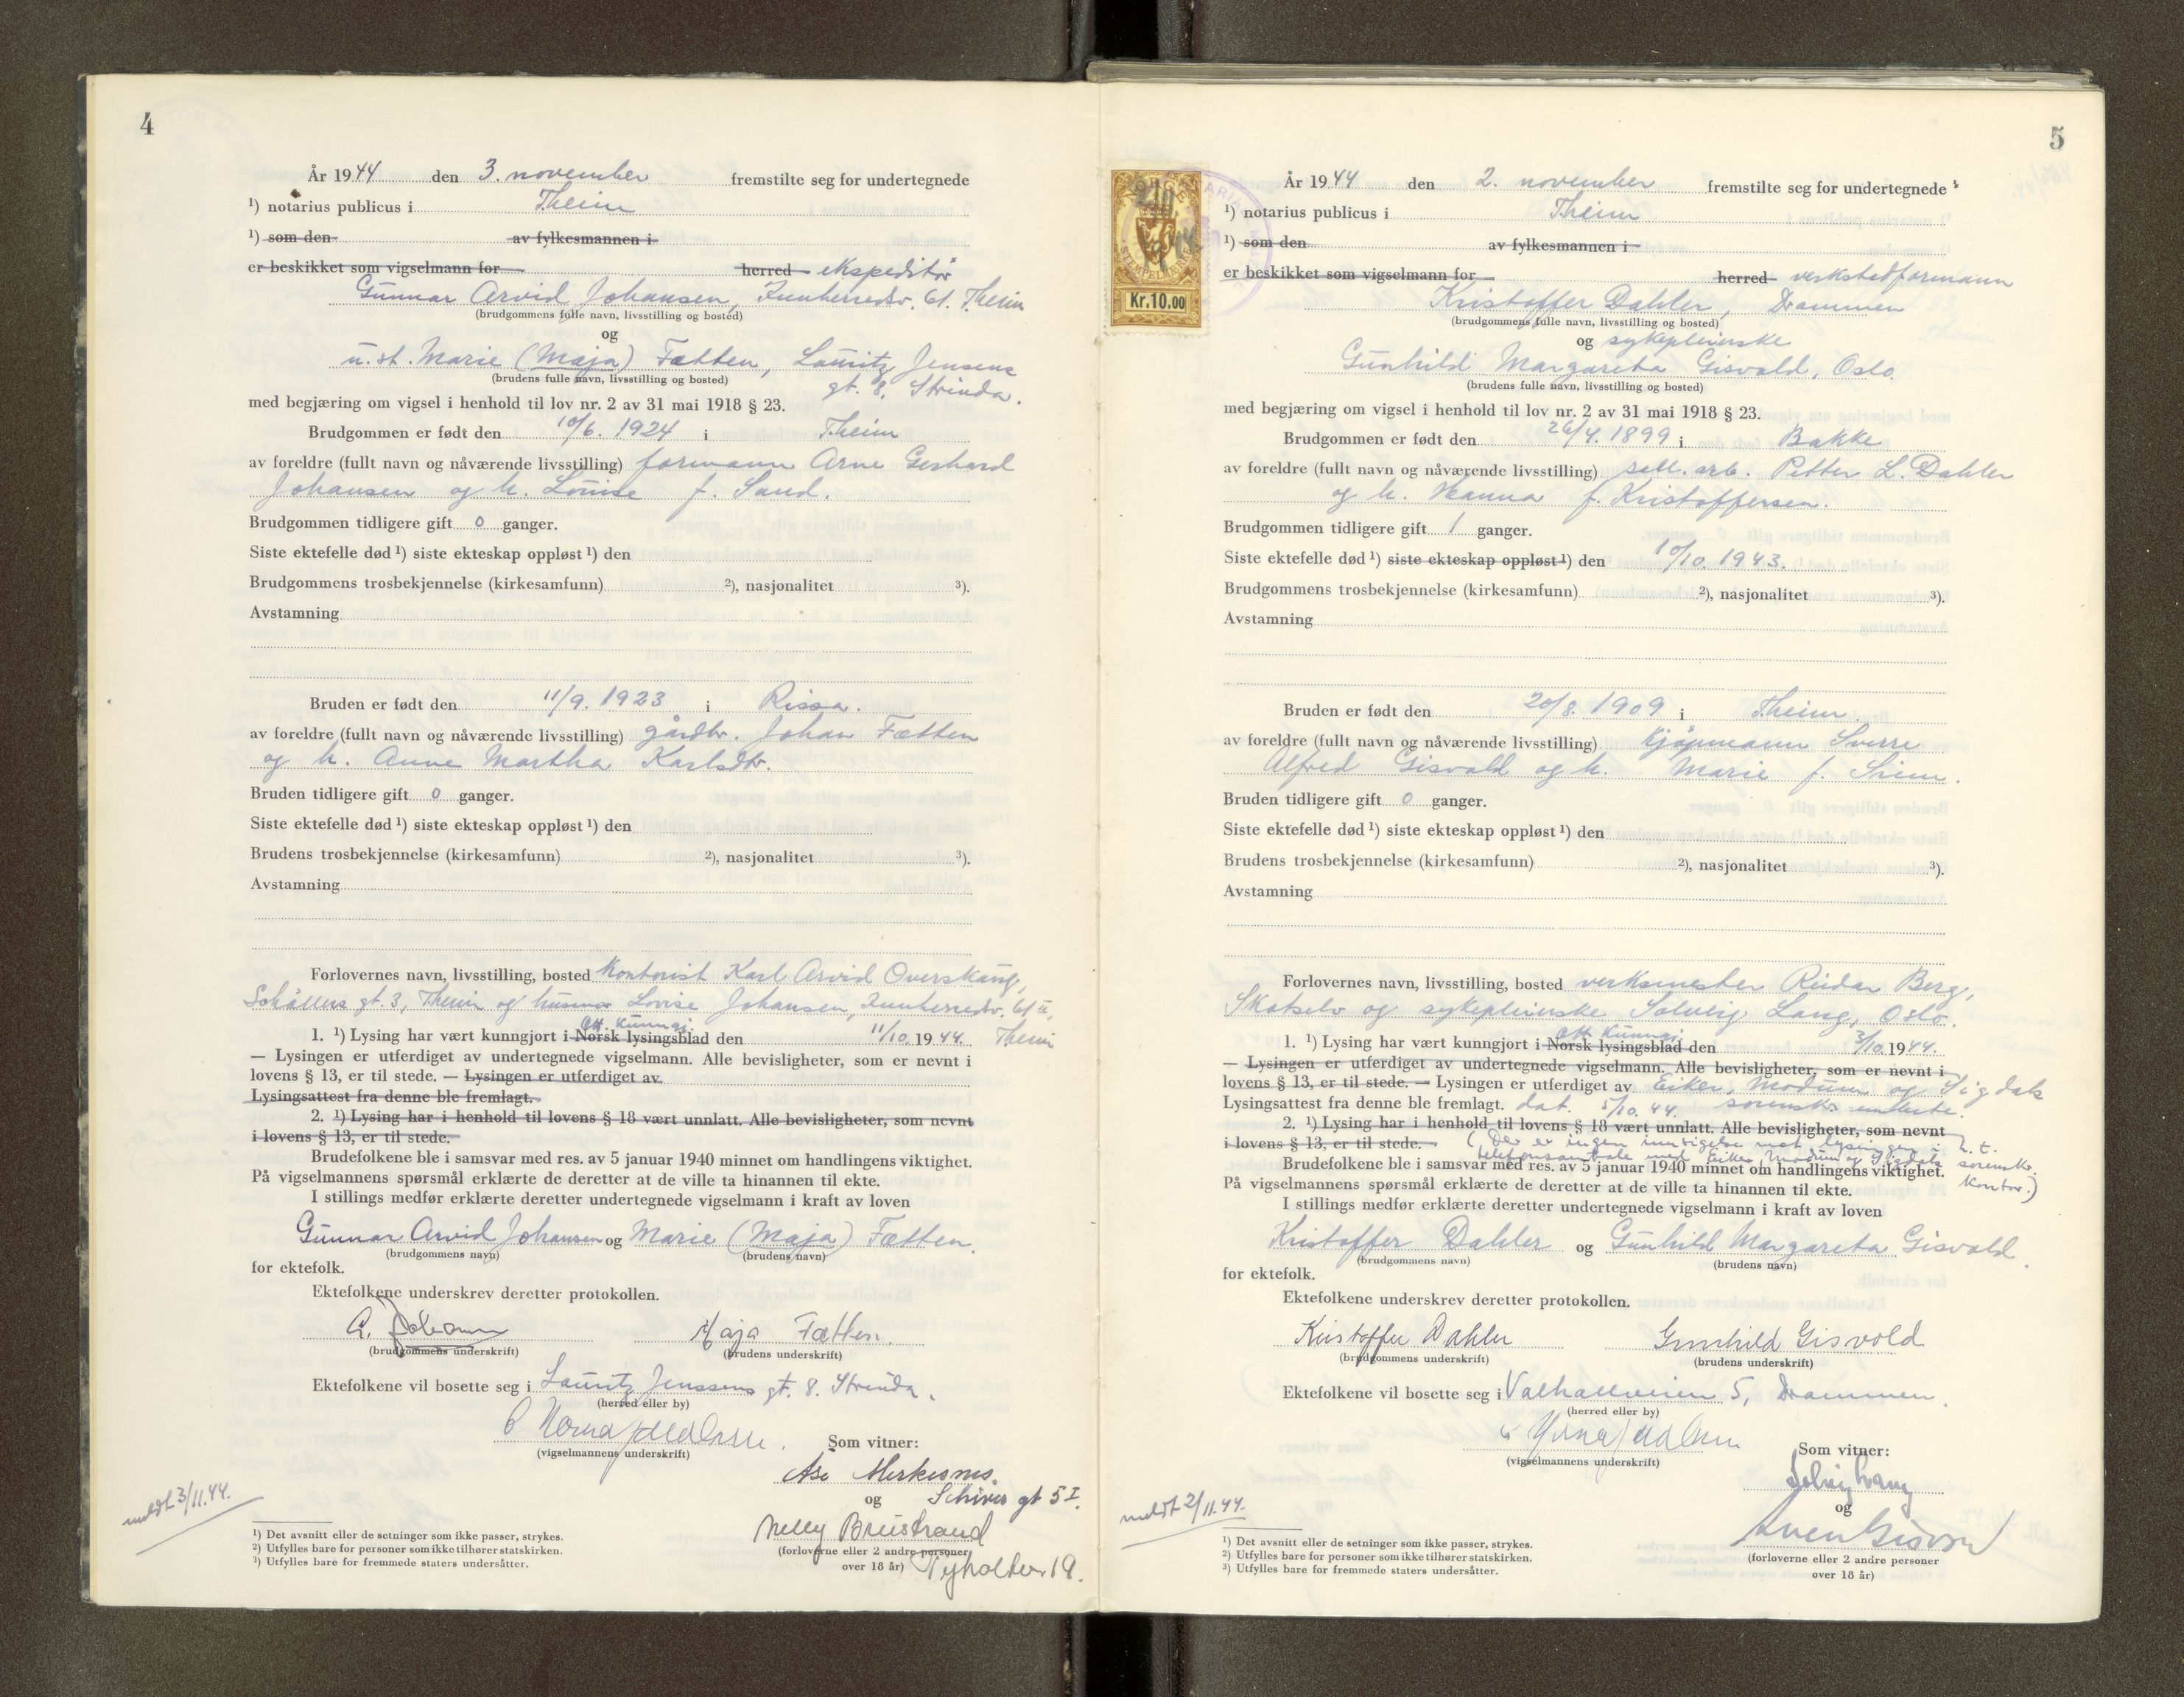 4
År 1944 den 3. november fremstilte seg for undertegnede
¹) notarius publicus i Theim
¹) som den av fylkesmannen i
er beskikket som vigselmann for herred ekspeditør
Gunnar Arvid Johansen, Innherredsv. 61. Theim
(brudgommens fulle navn, livsstilling og bosted)
og
u. st. Marie (Maja) Fætten, Lauritz Jensens
(brudens fulle navn, livsstilling og bosted) gt. 8, Strinda.
med begjæring om vigsel i henhold til lov nr. 2 av 31 mai 1918 § 23.
Brudgommen er født den 10/6. 1924 i Theim
av foreldre (fullt navn og nåværende livsstilling) formann Arne Gerhard
Johansen og h. Louise f. Sand.
Brudgommen tidligere gift 0 ganger.
Siste ektefelle død ¹) siste ekteskap oppløst ¹) den
Brudgommens trosbekjennelse (kirkesamfunn) ²), nasjonalitet ³).
Avstamning
Bruden er født den 11/9. 1923 i Rissa.
av foreldre (fullt navn og nåværende livsstilling) gårdbr. Johan Fætten
og h. Anne Martha Karlsdtr.
Bruden tidligere gift 0 ganger.
Siste ektefelle død ¹) siste ekteskap oppløst ¹) den
Brudens trosbekjennelse (kirkesamfunn) ²), nasjonalitet ³).
Avstamning
Forlovernes navn, livsstilling, bosted Kontorist Karl Arvid Overskaug,
gt. 3, Theim og husmor Lovise Johansen, Innherredsv. 61 II,
Off. kunngj.
1. ¹) Lysing har vært kunngjort i Norsk lysingsblad den 11/10. 1944. Theim
— Lysingen er utferdiget av undertegnede vigselmann. Alle bevisligheter, som er nevnt i
lovens § 13, er til stede. — Lysingen er utferdiget av
Lysingsattest fra denne ble fremlagt.
2. ¹) Lysing har i henhold til lovens § 18 vært unnlatt. Alle bevisligheter, som nevnt
i lovens § 13, er til stede.
Brudefolkene ble i samsvar med res. av 5 januar 1940 minnet om handlingens viktighet.
På vigselmannens spørsmål erklærte de deretter at de ville ta hinannen til ekte.
I stillings medfør erklærte deretter undertegnede vigselmann i kraft av loven
Gunnar Arvid Johansen og Marie (Maja) Fætten.
(brudgommens navn) (brudens navn)
for ektefolk.
Ektefolkene underskrev deretter protokollen.
G. Johansen Maja Fætten.
(brudgommens underskrift) (brudens underskrift)
Ektefolkene vil bosette seg i Lauritz Jenssens gt. 8. Strinda.
(herred eller by)
(vigselmannens underskrift)
Som vitner:
Åse
og gt 5 I.
Nelly Breistrand
(forloverne eller 2 andre personer
over 18 år) 19.
meldt 3/11.44.
¹) Det avsnitt eller de setninger som ikke passer, strykes.
²) Utfylles bare for personer som ikke tilhører statskirken.
³) Utfylles bare for fremmede staters undersåtter.
5
Kr.10.00
År 1944 den 2. november fremstilte seg for undertegnede
¹) notarius publicus i Theim
¹) som den av fylkesmannen i
er beskikket som vigselmann for herred verkstedformann
Kristoffer Dahler, Drammen
(brudgommens fulle navn, livsstilling og bosted)
og sykepleierske
Gunhild Margareta Gisvold, Oslo.
(brudens fulle navn, livsstilling og bosted)
med begjæring om vigsel i henhold til lov nr. 2 av 31 mai 1918 § 23.
Brudgommen er født den 26/4. 1899 i Bakke
av foreldre (fullt navn og nåværende livsstilling) sell. arb. Petter L. Dahler
og h. Hanna f. Kristoffersen.
Brudgommen tidligere gift 1 ganger.
Siste ektefelle død ¹) siste ekteskap oppløst ¹) den 10/10. 1943.
Brudgommens trosbekjennelse (kirkesamfunn) ²), nasjonalitet ³).
Avstamning
Bruden er født den 20/8. 1909 i Theim.
av foreldre (fullt navn og nåværende livsstilling) kjøpmann Sverre
Alfred Gisvold og h. Marie f.
Bruden tidligere gift 0 ganger.
Siste ektefelle død ¹) siste ekteskap oppløst ¹) den
Brudens trosbekjennelse (kirkesamfunn) ²), nasjonalitet ³).
Avstamning
Forlovernes navn, livsstilling, bosted verksmester Reidar Berg,
Skotselv og sykepleierske Solveig Lang, Oslo.
Off. kunngj.
1. ¹) Lysing har vært kunngjort i Norsk lysingsblad den 3/10. 1944.
— Lysingen er utferdiget av undertegnede vigselmann. Alle bevisligheter, som er nevnt i
lovens § 13, er til stede. — Lysingen er utferdiget av Eiker, Modum og Sigdals
Lysingsattest fra denne ble fremlagt. dat. 5/10. 44. sorenskr. embete.
2. ¹) Lysing har i henhold til lovens § 18 vært unnlatt. Alle bevisligheter, som nevnt
i lovens § 13, er til stede. (Der er ingen innsigelse mot lysingen h. t.
telefonsamtale med Eiker, Modum og Sigdals sorenskr.
Brudefolkene ble i samsvar med res. av 5 januar 1940 minnet om handlingens viktighet. kontor.)
På vigselmannens spørsmål erklærte de deretter at de ville ta hinannen til ekte.
I stillings medfør erklærte deretter undertegnede vigselmann i kraft av loven
Kristoffer Dahler og Gunhild Margareta Gisvold.
(brudgommens navn) (brudens navn)
for ektefolk.
Ektefolkene underskrev deretter protokollen.
Kristoffer Dahler Gunhild Gisvold
(brudgommens underskrift) (brudens underskrift)
Ektefolkene vil bosette seg i Valhallveien 5, Drammen.
(herred eller by)
(vigselmannens underskrift)
Som vitner:
Solveig Lang
og
Sven Gisvold
(forloverne eller 2 andre personer
over 18 år)
meldt 2/11.44.
¹) Det avsnitt eller de setninger som ikke passer, strykes.
²) Utfylles bare for personer som ikke tilhører statskirken.
³) Utfylles bare for fremmede staters undersåtter.